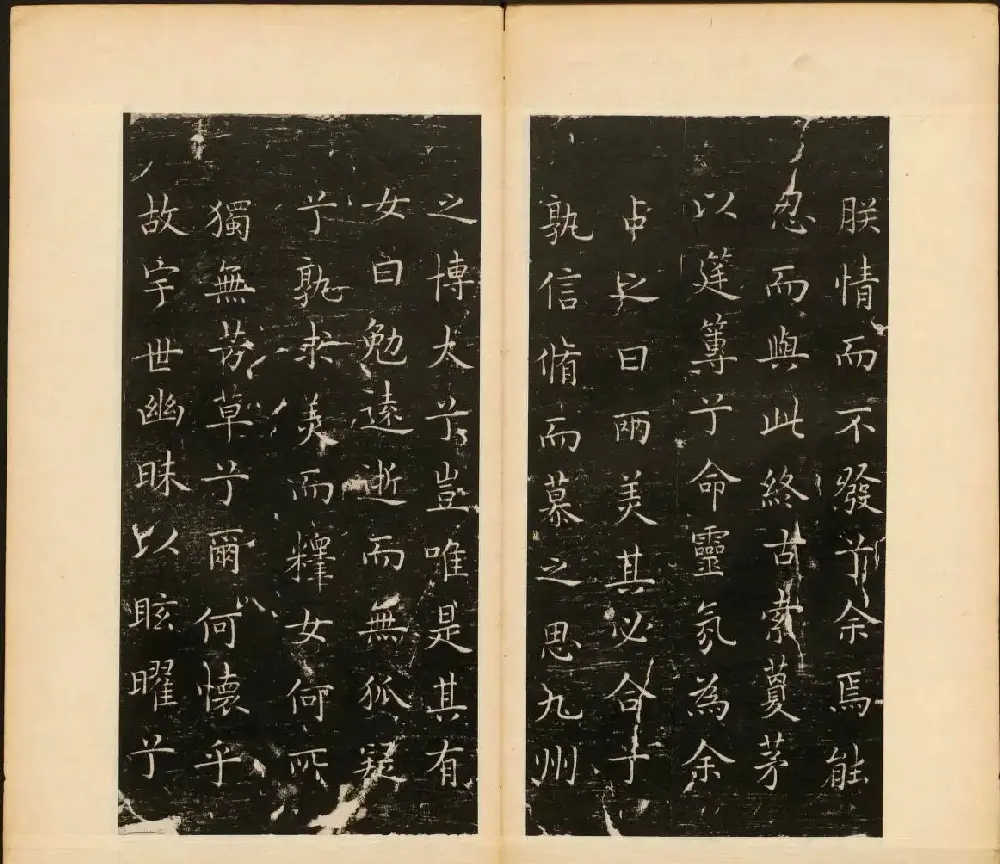 朕情而不發兮余焉能
忍而與此終古索藑茅
以莛篿兮命靈氛為余
占之曰兩美其必合兮
孰信脩而慕之思九州
之博大兮豈唯是其有
女曰勉遠逝而無狐疑
兮孰求美而釋女何所
獨無芳草兮爾何懷乎
故宇世幽昧以眩曜兮